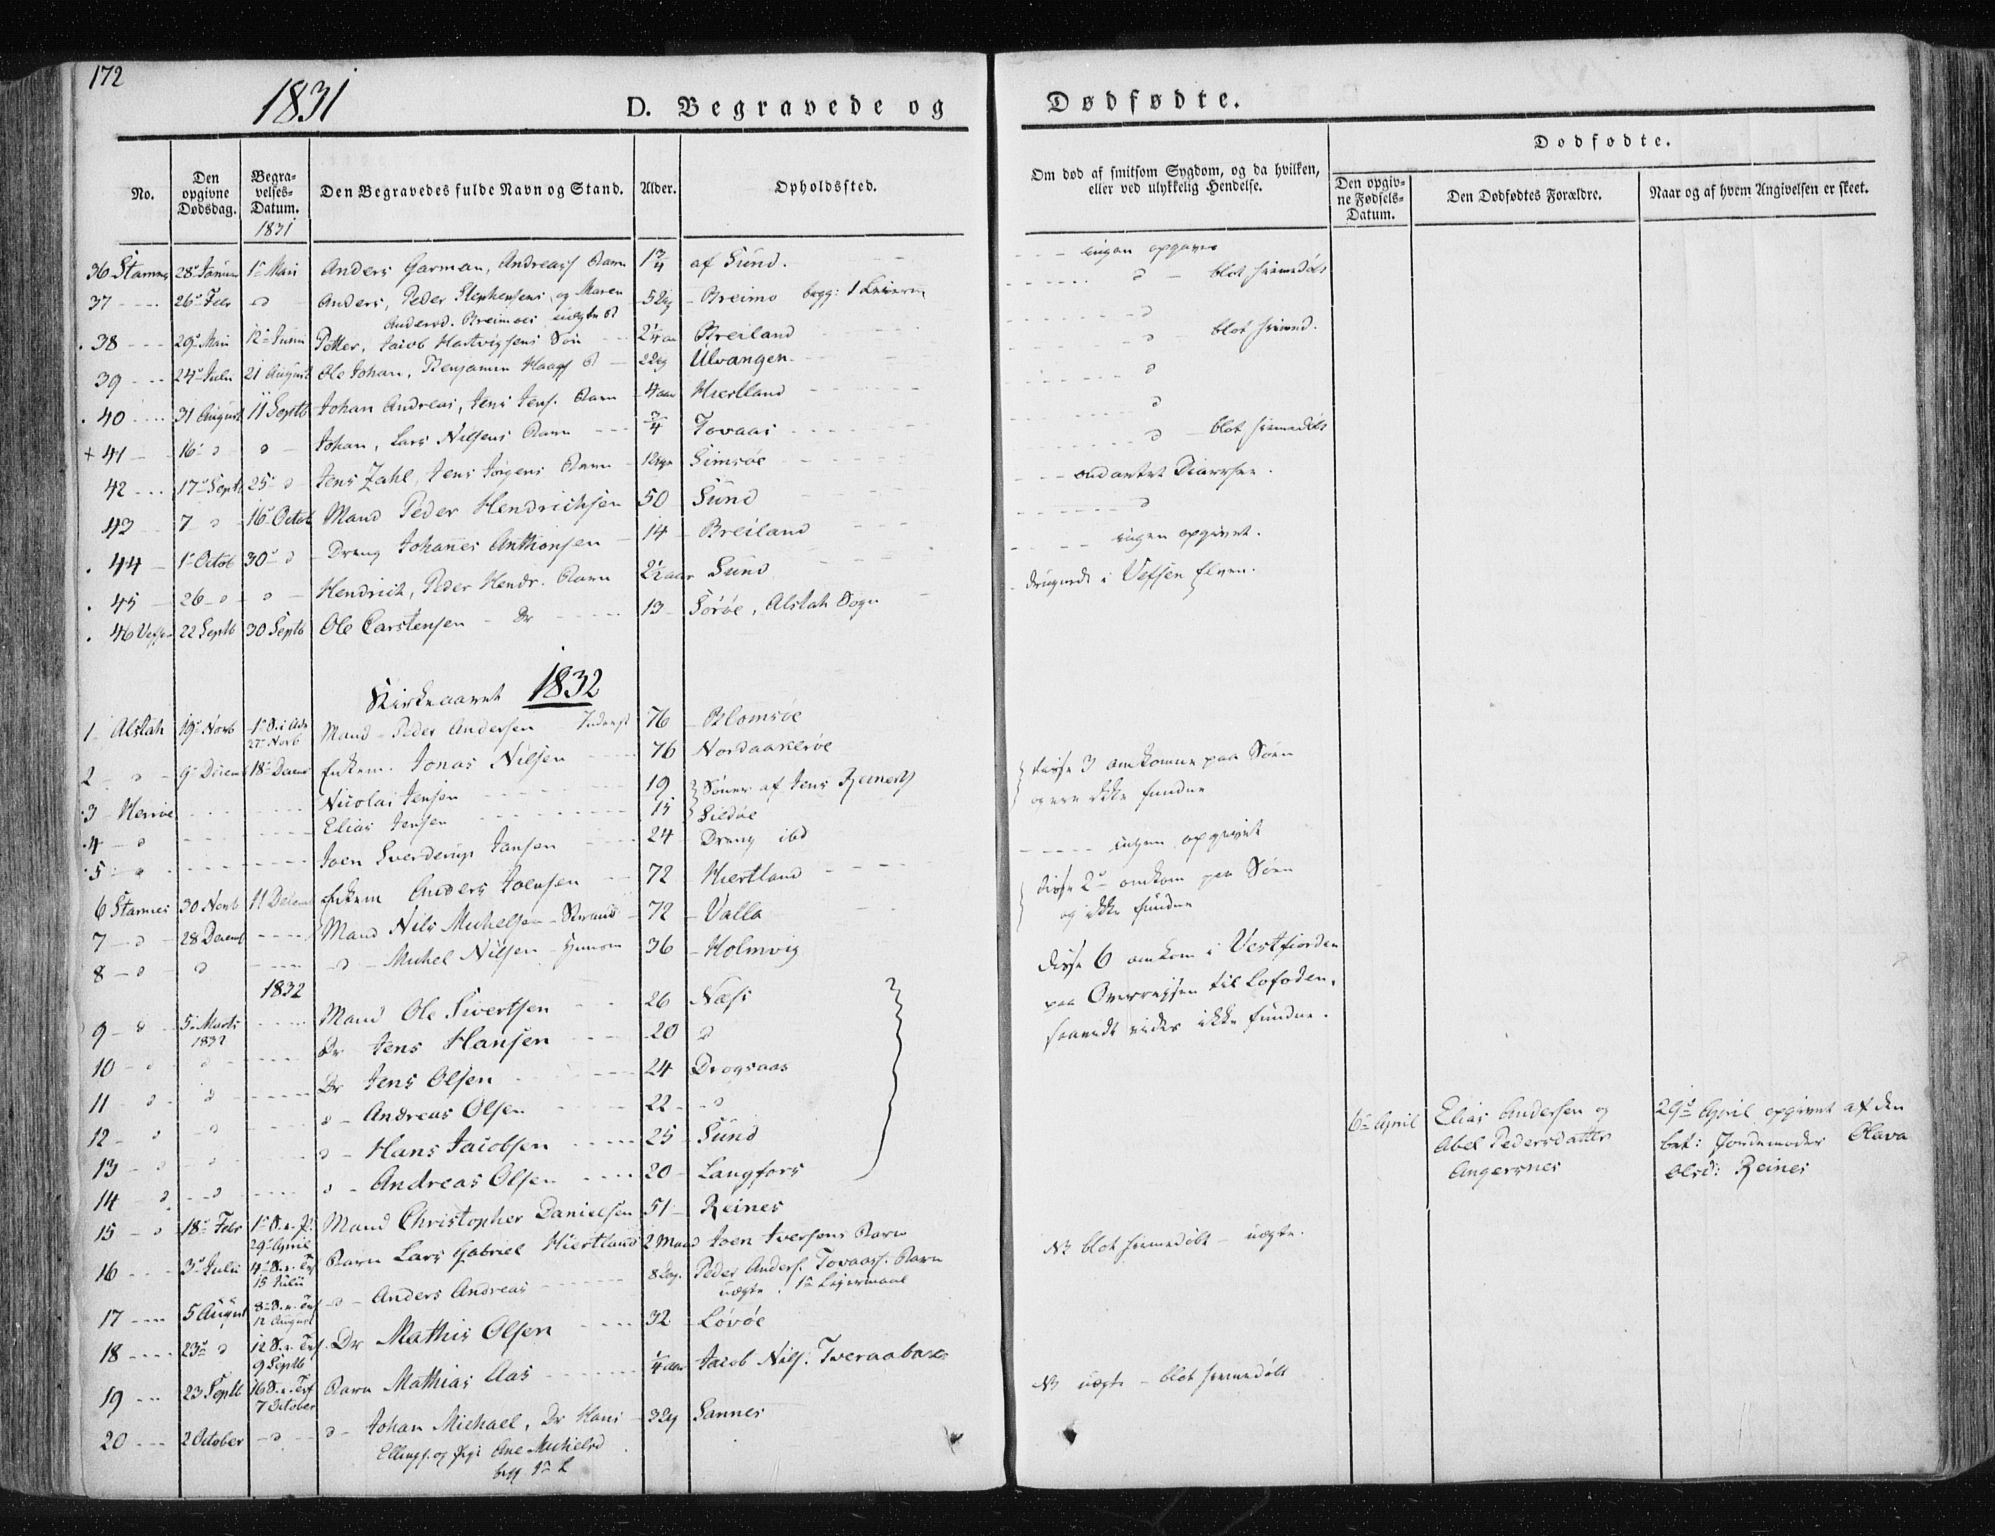 172
1831
D. Begravede og
Dødfødte.
No.
Den opgivne Dødsdag.
Begravelses-Datum.
1831
Den Begravedes fulde Navn og Stand.
Alder.
Opholdssted.
Om død af smitsom Sygdom, og da hvilken, eller ved ulykkelig Hendelse.
Dødfødte.
Den opgivne Fødsels-Datum.
Den Dødfødtes Forældre.
Naar og af hvem Angivelsen er skeet.
36 Stamnes 28 Januar 1 Mai Anders Garman, Andreas Barn 1 3/4 af Sund. ingen opgaver
37 26 Febr d Anders, Peder Stephensens og Maren 5 Dg Breimo begg: 1 Leierm d blot hiemedøbt
Andersd. Breimoes uægte B
38 29 Mai 12 Juni Petter, Jacob Hartvigsens Søn 2 1/4 aar Breiland d
39 24 Juli 21 August Ole Johan, Benjamin Haags B 2 Dg Ulvangen d blot hiemd.
40 31 August 11 Septb Johan Andreas, Jens Jens. Barn 4 aar Hiertland d
41 16 d d Johan, Lars Nilsens Barn 3/4 Tovaas d
42 17 Septb 25 d Jens Zahl, Jens Jörgens Barn 12 Dge Simsøe d blot hiemedøbt
43 7 d 16 Octob Mand Peder Hendrichsen 50 Sund ondartet Diarrhee.
44 1 Octob 30 d Dreng Johannes Anthonsen 14 Breiland d
45 26 d d Hendrich, Peder Hendr. Barn 2 1/2 aar Sund ingen opgivet.
46 Vefsen 22 Septb 30 Septb Ole Carstensen Dr 13 Sørøe, Alstah Sogn druknede i Vefsen Elven.
Kirkeaaret 1832
1 Alstah 19 Novb 1 S. i Adv 27 Novb Mand Peder Andersen 76 Blomsøe
2 d 9 Decemb 18 Decemb Enkem. Jonas Nilsen 76 Nordaakerøe
3 Herrøe Nicolai Jensen 19 Sønner af Jens Reinerts disse 3 omkomne paa Søen
4 d Elias Jensen 15 Sildøe og ere ikke fundne
5 d Joen Sverderup Jansen 24 Dreng ibd
6 Stamnes 30 Novb 11 Decemb Enkem Anders Joensen 72 Hiertland ingen opgivet
7 d 28 Decemb Mand Nils Michelsen 72 Valla disse 2 omkom paa Søen
8 d d d Michel Nilsen 36 Holmvig og ikke fundne
1832
9 d 5 Marts 1832 Mand Ole Sivertsen 26 Næss disse 6 omkom i Vestfiorden
10 d d Dr Jens Hansen 20 d paa Overreisen til Lofoden,
11 d d Dr Jens Olsen 24 Drogsaas saavidt vides ikke fundne.
12 d d d Andreas Olsen 22 d
13 d d d Hans Jacobsen 25 Sund
14 d d d Andreas Olsen 20 Langfors
6 April Elias Andersen og 29 April opgivet af den
Abel Pedersdatter bet: Jordemoder Olava
Angersnes Olsd: Reines
15 d 18 Febr 29 April Mand Christopher Danielsen 51 Reines
16 3 Juli 15 Juli Barn Lars Gabriel Hiertland 2 Maad Joen Iversens Barn
17 5 August 12 August d Anders Andreas 8 Dag. Peder Anders. Tovaas. Barn NB blot hiemedøbt uægte.
uægte 1 Leiermaal
18 23 d 9 Septb Dr Mathis Olsen 32 Løvøe
19 23 Septb 7 October Barn Mathias Aas 1/4 aar Jacob Nils. Tveraabak
20 2 October d d Johan Michael, Dr Hans 3 Dg Sannes NB uægte blot hiemedøbt
Ellings. og Pige Ane Michelsd
begg 1 L